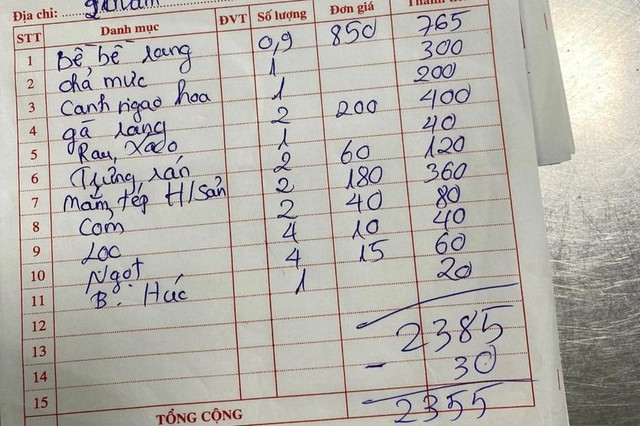 Địa chỉ:
STT Danh mục ĐVT Số lượng Đơn giá
1 Bề bề rang 0,9 850 765
2 chả mực 1 300
3 Canh ngao hoa 1 200
4 gà rang 2 200 400
5 Rau xào 1 40
6 Trứng rán 2 60 120
7 Mắm tép H/Sản 2 180 360
8 Cơm 2 40 80
9 Loc 4 10 40
10 Ngọt 4 15 60
11 B. Húc 1 20
12 2385
13
14 - 30
15 2355
TỔNG CỘNG